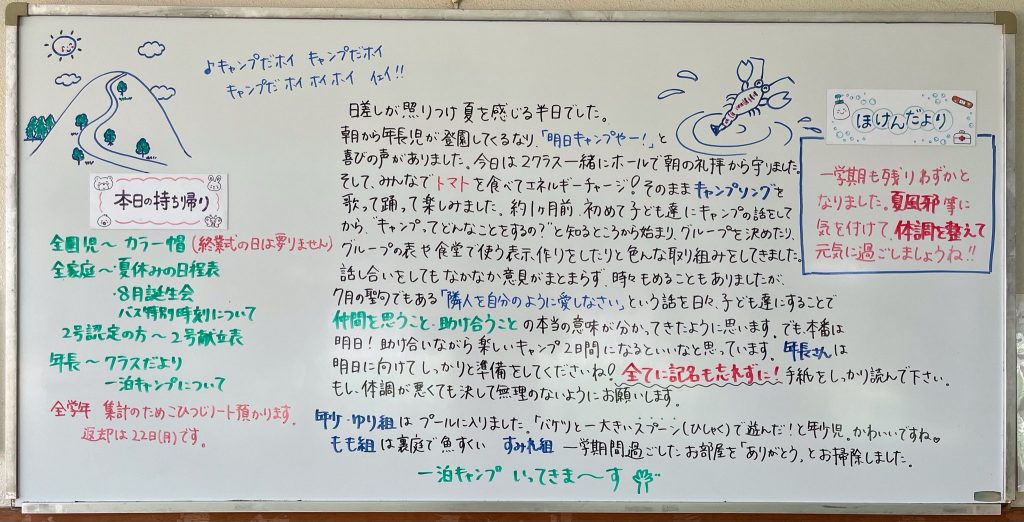 ♪キャンプだホイ キャンプだホイ
キャンプだ ホイ ホイ ホイ イェイ!!
本日の持ち帰り
全園児〜 カラー帽(終業式の日は要りません)
全家庭〜 夏休みの日程表
・8月誕生会
バス特別時刻について
2号認定の方〜2号献立表
年長〜クラスだより
一泊キャンプについて
全学年 集計のためこひつじノート預かります。
返却は22日(月)です。
日差しが照りつけ夏を感じる半日でした。
朝から年長児が登園してくるなり、「明日キャンプやー!」と
喜びの声がありました。今日は2クラス一緒にホールで朝の礼拝から守りました。
そして、みんなでトマトを食べてエネルギーチャージ!そのままキャンプソングを
歌って踊って楽しみました。約1ヶ月前、初めて子ども達にキャンプの話をして
から、“キャンプってどんなことをするの?”と知るところから始まり、グループを決めたり、
グループの表や食堂で使う表示作りをしたりと色んな取り組みをしてきました。
話し合いをしてもなかなか意見がまとまらず、時々もめることもありましたが、
7月の聖句でもある「隣人を自分のように愛しなさい」という話を日々、子ども達にすることで
仲間を思うこと・助け合うことの本当の意味が分かってきたように思います。でも、本番は
明日!助け合いながら楽しいキャンプ2日間になるといいなと思っています。年長さんは
明日に向けてしっかりと準備をしてくださいね!全てに記名も忘れずに!手紙をしっかり読んで下さい。
もし、体調が悪くても決して無理のないようにお願いします。
年少・ゆり組はプールに入りました。「バケツと一大きいスプーン(ひしゃく)で遊んだ!と年少児。かわいいですね♡
もも組は裏庭で魚すくい すみれ組 一学期間過ごしたお部屋を「ありがとう」とお掃除しました。
一泊キャンプ いってきま〜す
ほけんだより
一学期も残りわずかと
なりました。夏風邪等に
気を付けて、体調を整えて
元気に過ごしましょうね!!